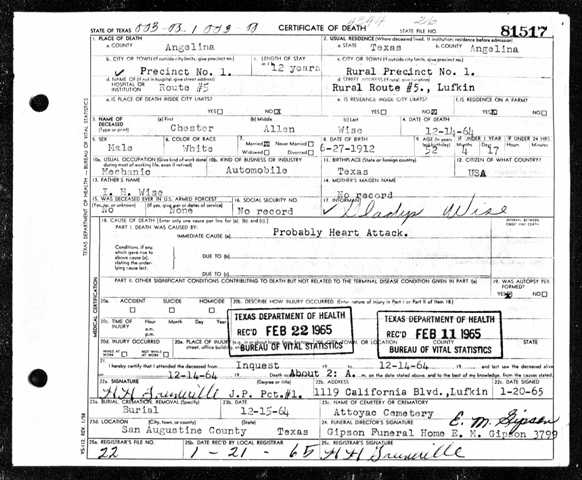 STATE OF TEXAS
CERTIFICATE OF DEATH
STATE FILE NO.
81517
1. PLACE OF DEATH
a. COUNTY
Angelina
2. USUAL RESIDENCE
a. STATE
Texas
b. COUNTY
Angelina
b. CITY OR TOWN (If outside city limits, give precinct no.)
Precinct No. 1.
c. LENGTH OF STAY
12 years
c. CITY OR TOWN (If outside city limits, give precinct no.)
Rural Precinct No. 1.
d. NAME OF
HOSPITAL OR
INSTITUTION
Route #5
Rural Route #5., Lufkin
e. IS PLACE OF DEATH INSIDE CITY LIMITS?
YES NO
e. IS RESIDENCE INSIDE CITY LIMITS?
YES NO
f. IS RESIDENCE ON A FARM?
YES NO
3. NAME OF
DECEASED
(Type or print)
(a) First
Chester
(b) Middle
Allen
(c) Last
Wise
4. DATE OF DEATH
12-14-64
5. SEX
Male
6. COLOR OR RACE
White
7. Married Never Married
Widowed Divorced
8. DATE OF BIRTH
6-27-1912
52
17
10a. USUAL OCCUPATION
Mechanic
10b. KIND OF BUSINESS OR INDUSTRY
Automobile
11. BIRTHPLACE (State or foreign country)
Texas
12. CITIZEN OF WHAT COUNTRY?
USA
13. FATHER'S NAME
I. H. Wise
14. MOTHER'S MAIDEN NAME
No record
15. WAS DECEASED EVER IN U.S. ARMED FORCES?
No
None
16. SOCIAL SECURITY NO.
No record
17. INFORMANT
Gladys Wise
18. CAUSE OF DEATH
PART I. DEATH WAS CAUSED BY:
IMMEDIATE CAUSE (a)
Probably Heart Attack.
Conditions, if any,
which gave rise to
above cause (a),
stating the under-
lying cause last.
DUE TO (b)
DUE TO (c)
PART II. OTHER SIGNIFICANT CONDITIONS CONTRIBUTING TO DEATH BUT NOT RELATED TO THE TERMINAL DISEASE CONDITION GIVEN IN PART I(a)
19. WAS AUTOPSY PERFORMED?
YES NO
20a. ACCIDENT SUICIDE HOMICIDE
20b. DESCRIBE HOW INJURY OCCURRED.
20c. TIME OF
INJURY
Hour Month Day Year
a.m.
p.m.
TEXAS DEPARTMENT OF HEALTH
REC'D FEB 22 1965
BUREAU OF VITAL STATISTICS
TEXAS DEPARTMENT OF HEALTH
REC'D FEB 11 1965
BUREAU OF VITAL STATISTICS
20d. INJURY OCCURRED
COUNTY
STATE
21. I hereby certify that I attended the deceased from
Inquest
12-14-64
and last saw the deceased alive
12-14-64
About 2: A.
m. on the date stated above, and to the best of my knowledge, from the causes stated.
22a. SIGNATURE
(Degree or title)
J.P. Pct.#1.
22b. ADDRESS
1119 California Blvd., Lufkin
22c. DATE SIGNED
1-20-65
23a. BURIAL, CREMATION, REMOVAL (Specify)
Burial
23b. DATE
12-15-64
23c. NAME OF CEMETERY OR CREMATORY
Attoyac Cemetery
23d. LOCATION
(City, town, or county) (State)
San Augustine County Texas
24. FUNERAL DIRECTOR'S SIGNATURE
E. M. Gipson
Gipson Funeral Home E. M. Gipson 3799
25a. REGISTRAR'S FILE NO.
22
25b. DATE REC'D BY LOCAL REGISTRAR
1-21-65
25c. REGISTRAR'S SIGNATURE
TEXAS DEPARTMENT OF HEALTH - BUREAU OF VITAL STATISTICS
MEDICAL CERTIFICATION